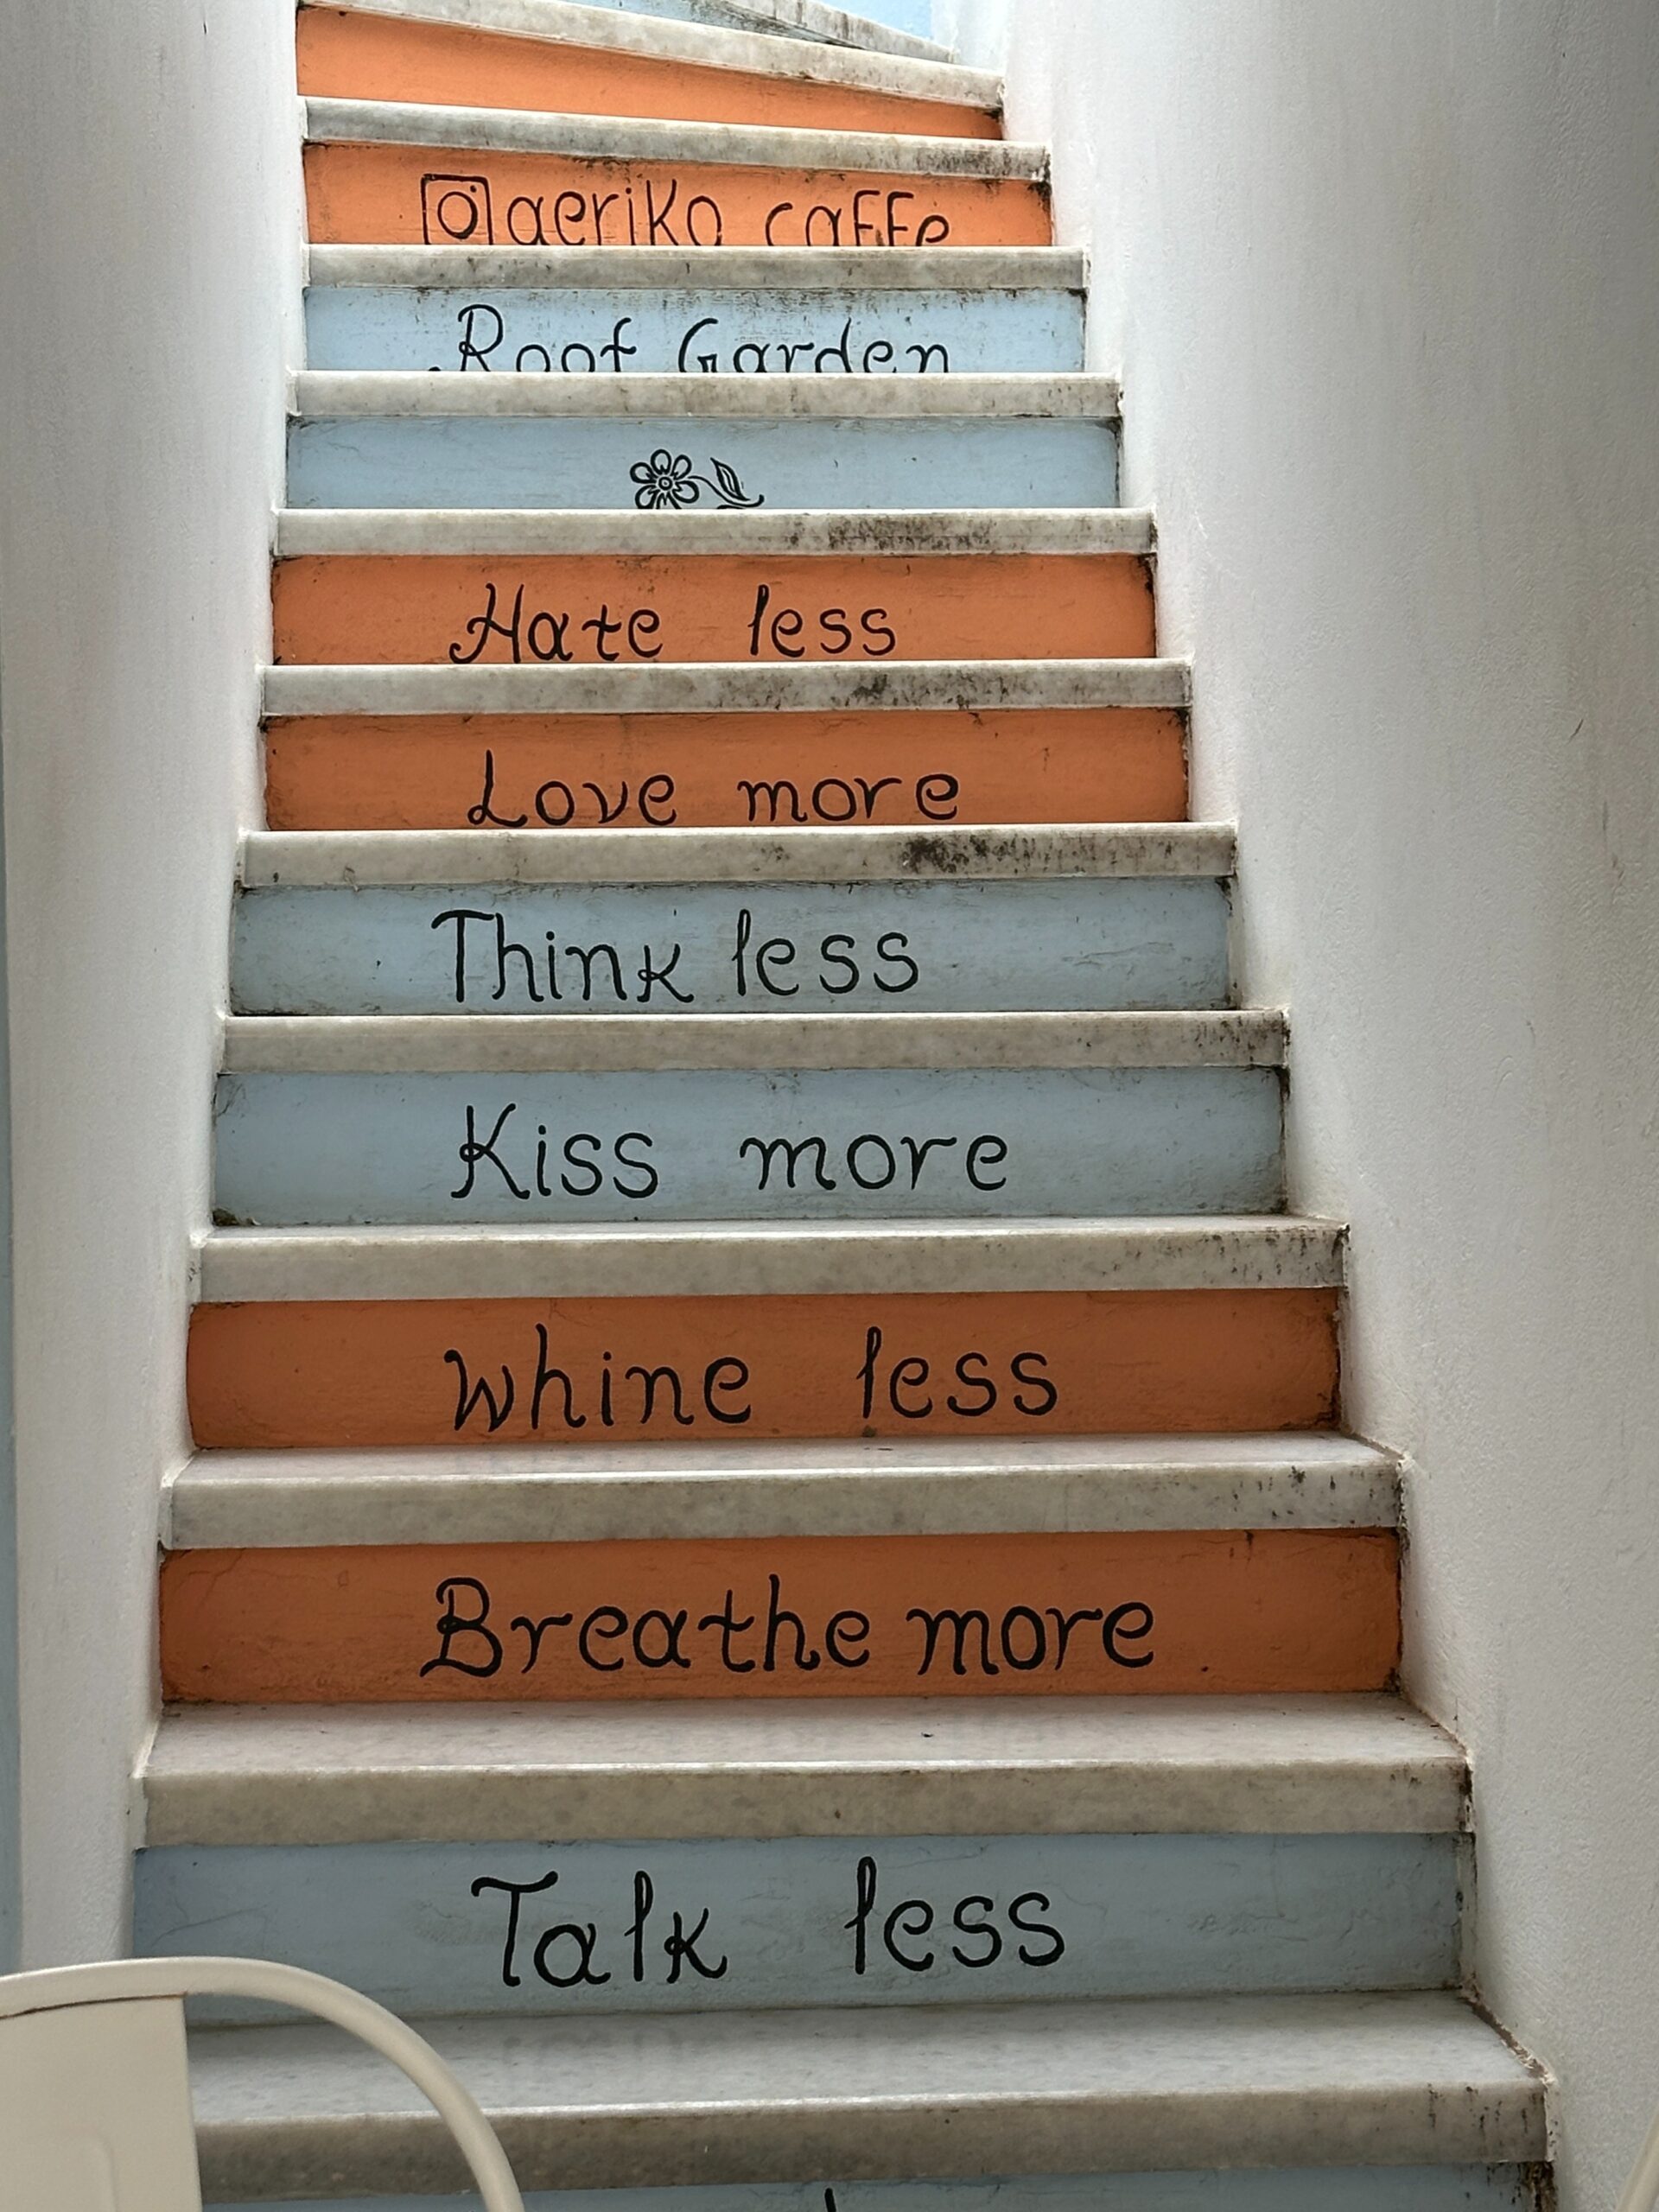 aeriko caffe
Roof Garden
Hate less
Love more
Think less
Kiss more
Whine less
Breathe more
Talk less